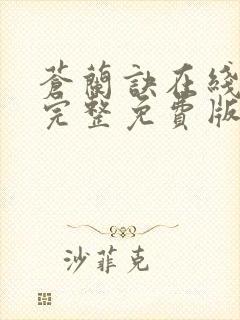 蒼蘭訣在綫
完整免費版
沙菲克